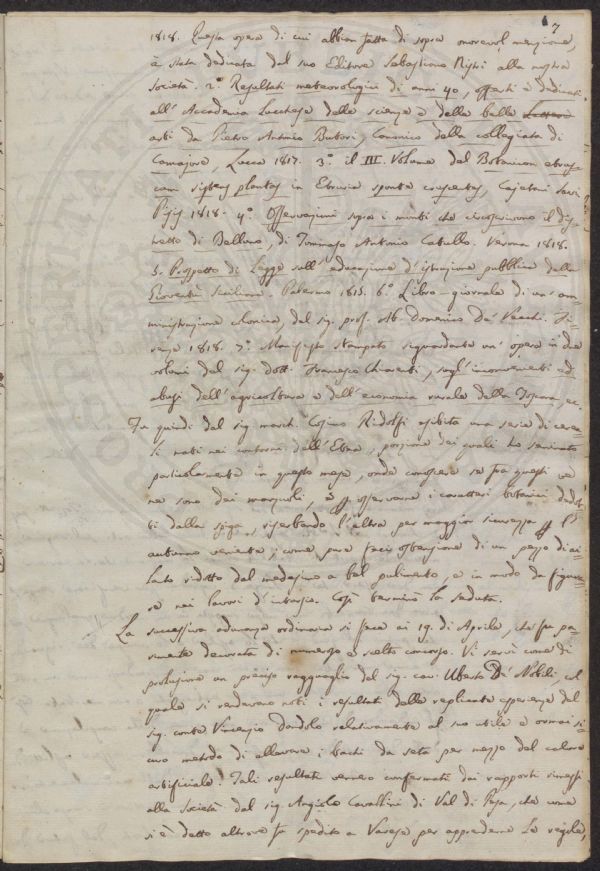 7
1818. Questa opera di cui abbiam fatta di sopra onorevol menzione,
è stata dedicata dal suo Editore Sebastiano Nistri alla nostra
Società. 2.° Resultati meteorologici di anni 40, offerti e dedicati
all'Accademia Lucchese delle scienze e delle belle Lettere
arti da Pietro Antonio Butori, Canonico della collegiata di
Camajore, Lucca 1817. 3.° il III. Volume del Botanicon etrus-
cum sistens plantas in Etruria sponte crescentes, Cajetani Savi
Pisis 1818. 4.° Osservazioni sopra i monti che circoscrivono il dis-
tretto di Belluno, di Tommaso Antonio Catullo. Verona 1818.
5. Prospetto di Legge sull'educazione d'istruzione pubblica della
Gioventù Siciliana. Palermo 1815. 6.° Libro-giornale di un'am-
ministrazione colonica, del sig. prof. Ab. Domenico De' Vecchi, Fi-
renze 1818. 7.° Manifesto stampato riguardante un'opera in due
volumi del sig. dott. Francesco Chiarenti, sugl'inconvenienti ed
abusi dell'agricoltura e dell'economia rurale della Toscana ec.
Fu quindi dal sig. march. Cosimo Ridolfi esibita una serie di cerea-
li nati nei contorni dell'Etna, porzione dei quali ho seminato
particolarmente in questo mese, onde conoscere se fra questi ve
ne sono dei marzuoli, e osservarne i caratteri botanici dedot-
ti dalla spiga, riserbando l'altra per maggior sicurezza
autunno veniente; come pure fece ostensione di un pezzo di ai-
lanto ridotto dal medesimo a bel pulimento, e in modo da figura-
re nei lavori d'intarsio. Così terminò la seduta.
La successiva adunanza ordinaria si fece ai 19. di Aprile, che fu pa-
rimente decorata di numeroso e scelto concorso. Vi servì come di
prolusione un preciso ragguaglio del sig. cav. Uberto De' Nobili, col
quale si rendevano noti i resultati delle replicate esperienze del
sig. conte Vincenzio Dandolo relativamente al suo utile e ormai si-
curo metodo di allevare i bachi da seta per mezzo del calore
artificiale. Tali resultati vennero confermati dai rapporti rimessi
alla Società dal sig. Angiolo Cavallini di Val di Pesa, che come
si è detto altrove fu spedito a Varese per apprenderne le regole,